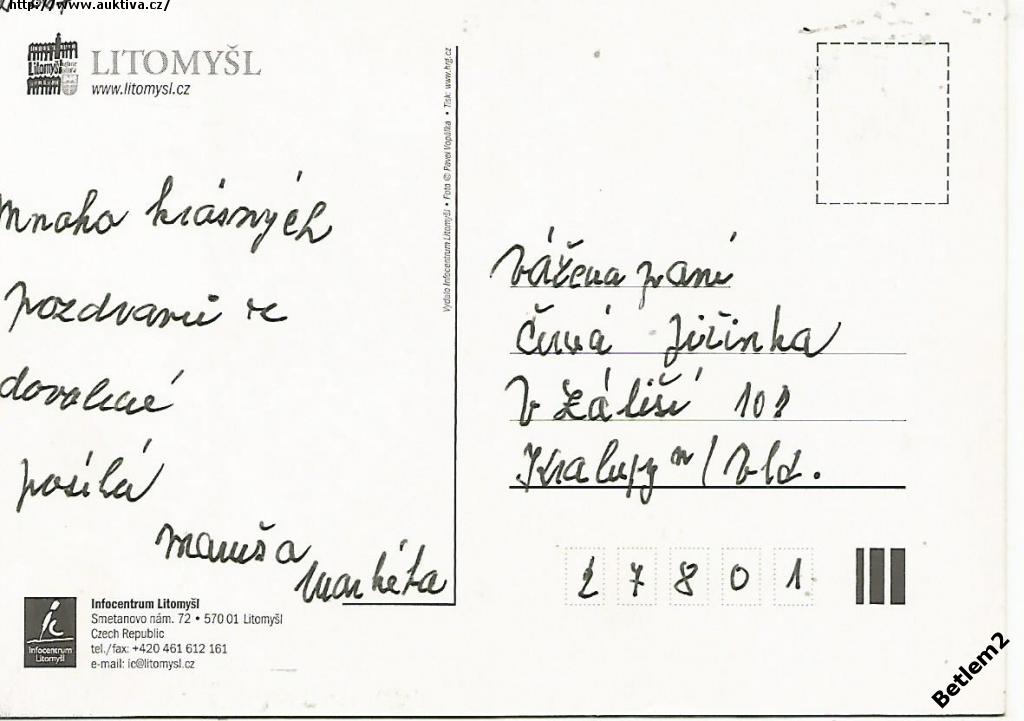 http://www.auktiva.cz/
LITOMYŠL
www.litomysl.cz
Mnoho krásných
pozdravů z
dovolené
posílá
Maruša
Markéta
Vydalo Infocentrum Litomyšl • Foto © Pavel Vopálka • Tisk: www.hrg.cz
Vážená paní
Černá Jiřinka
V Zátiší
Kralupy n/Vlt.
27801
Infocentrum Litomyšl
Infocentrum Litomyšl
Smetanovo nám. 72 • 570 01 Litomyšl
Czech Republic
tel./fax: +420 461 612 161
e-mail: ic@litomysl.cz
Betlem2